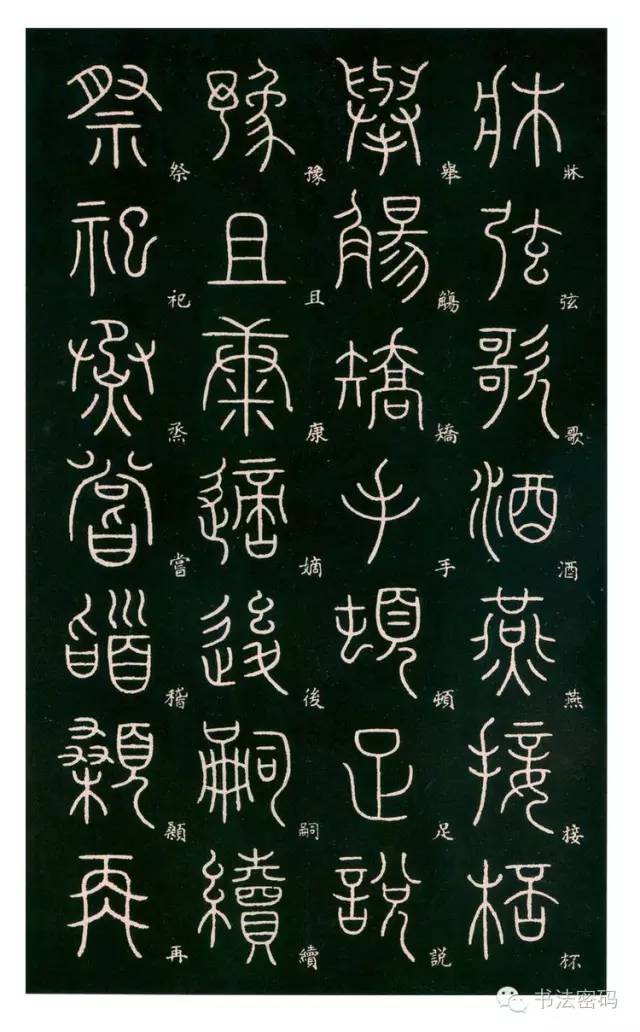 牀弦歌酒燕接杯
舉觴矯手頓足説
豫且康嫡後嗣續
祭祀烝嘗稽顙再
书法密码